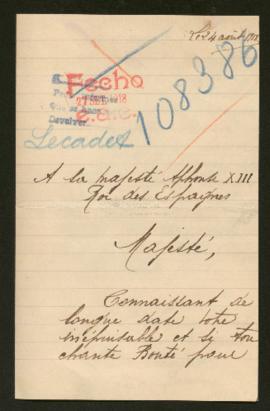 24 août 1918
Fecho
27 SET. 1918
Devolver
108386
Lecadet
A sa majesté Alphonse XIII
Roi des Espagnes
Majesté,
Connaissant de
longue date votre
inépuisable et si tou
chante Bonté pour